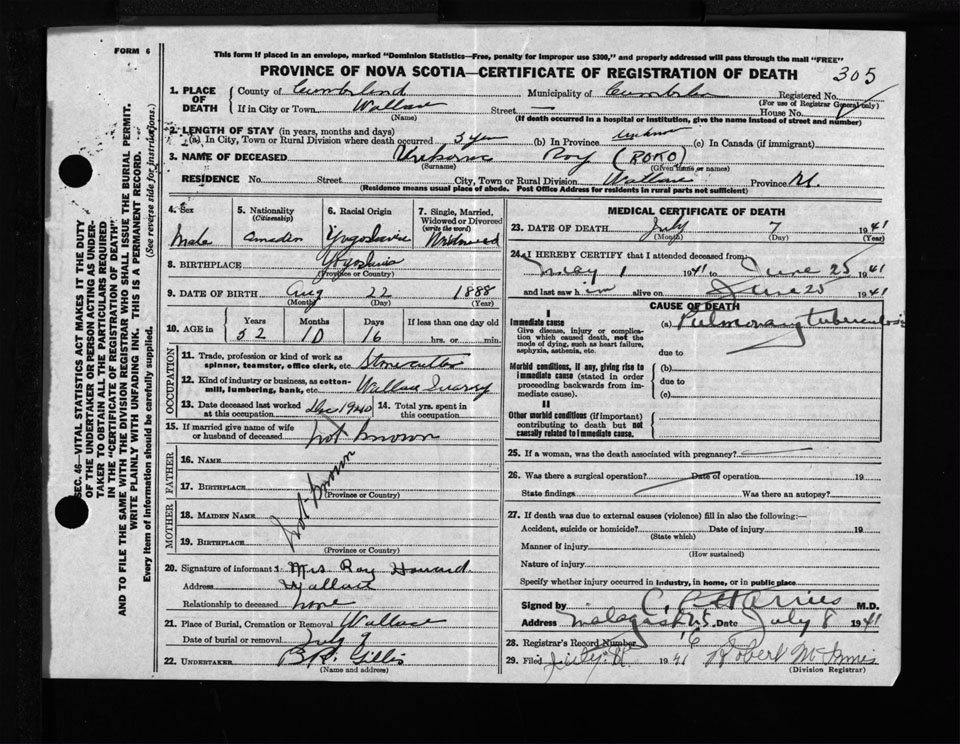 FORM 6
This form if placed in an envelope, marked "Dominion Statistics—Free, penalty for improper use $300," and properly addressed will pass through the mail "FREE"
PROVINCE OF NOVA SCOTIA—CERTIFICATE OF REGISTRATION OF DEATH 305
SEC. 46—VITAL STATISTICS ACT MAKES IT THE DUTY
OF THE UNDERTAKER OR PERSON ACTING AS UNDER-
TAKER TO OBTAIN ALL THE PARTICULARS REQUIRED
IN THE "CERTIFICATE OF REGISTRATION OF DEATH"
AND TO FILE THE SAME WITH THE DIVISION REGISTRAR WHO SHALL ISSUE THE BURIAL PERMIT.
WRITE PLAINLY WITH UNFADING INK. THIS IS A PERMANENT RECORD.
Every item of Information should be carefully supplied. (See reverse side for instructions.)
1. PLACE OF DEATH
County of Cumberland Municipality of Registered No.
(For use of Registrar General only)
If in City or Town Wallace Street — House No.
(Name) (If death occurred in a hospital or institution, give the name instead of street and number)
2. LENGTH OF STAY (in years, months and days)
(a) In City, Town or Rural Division where death occurred 3 (b) In Province (c) In Canada (if immigrant)
3. NAME OF DECEASED Roy (ROKO)
(Surname) (Given name or names)
RESIDENCE No. Street City, Town or Rural Division Wallace Province
(Residence means usual place of abode. Post Office Address for residents in rural parts not sufficient)
4. Sex Male
5. Nationality (Citizenship)
6. Racial Origin
7. Single, Married, Widowed or Divorced (write the word) Widowed
8. BIRTHPLACE
(Province or Country)
9. DATE OF BIRTH Aug 22 1888
(Month) (Day) (Year)
10. AGE in Years Months Days If less than one day old
52 10 16 hrs. or min.
OCCUPATION
11. Trade, profession or kind of work as spinner, teamster, office clerk, etc. Stonecutter
12. Kind of industry or business, as cotton-mill, lumbering, bank, etc. Wallace Quarry
13. Date deceased last worked at this occupation Dec 1940 14. Total yrs. spent in this occupation
15. If married give name of wife or husband of deceased not known
FATHER
16. NAME
17. BIRTHPLACE
(Province or Country)
not known
MOTHER
18. MAIDEN NAME
19. BIRTHPLACE
(Province or Country)
20. Signature of informant Mrs Roy Howard
Address Wallace
Relationship to deceased none
21. Place of Burial, Cremation or Removal Wallace
Date of burial or removal July 9
22. UNDERTAKER Gillis
(Name and address)
MEDICAL CERTIFICATE OF DEATH
23. DATE OF DEATH July 7 1941
(Month) (Day) (Year)
24. I HEREBY CERTIFY that I attended deceased from
May 1 1941 to June 25 1941
and last saw him alive on June 25 1941
CAUSE OF DEATH
I
Immediate cause (a) Pulmonary tuberculosis
Give disease, injury or complication which caused death, not the mode of dying, such as heart failure, asphyxia, asthenia, etc.
due to
Morbid conditions, if any, giving rise to immediate cause (stated in order proceeding backwards from immediate cause). (b)
due to
(c)
II
Other morbid conditions (if important) contributing to death but not causally related to immediate cause.
25. If a woman, was the death associated with pregnancy?
26. Was there a surgical operation? Date of operation 19
State findings Was there an autopsy?
27. If death was due to external causes (violence) fill in also the following:—
Accident, suicide or homicide? Date of injury 19
(State which)
Manner of injury
(How sustained)
Nature of injury
Specify whether injury occurred in industry, in home, or in public place
Signed by M.D.
Address Date July 8 1941
28. Registrar's Record Number 6
29. Filed July 1941 Robert McInnis
(Division Registrar)